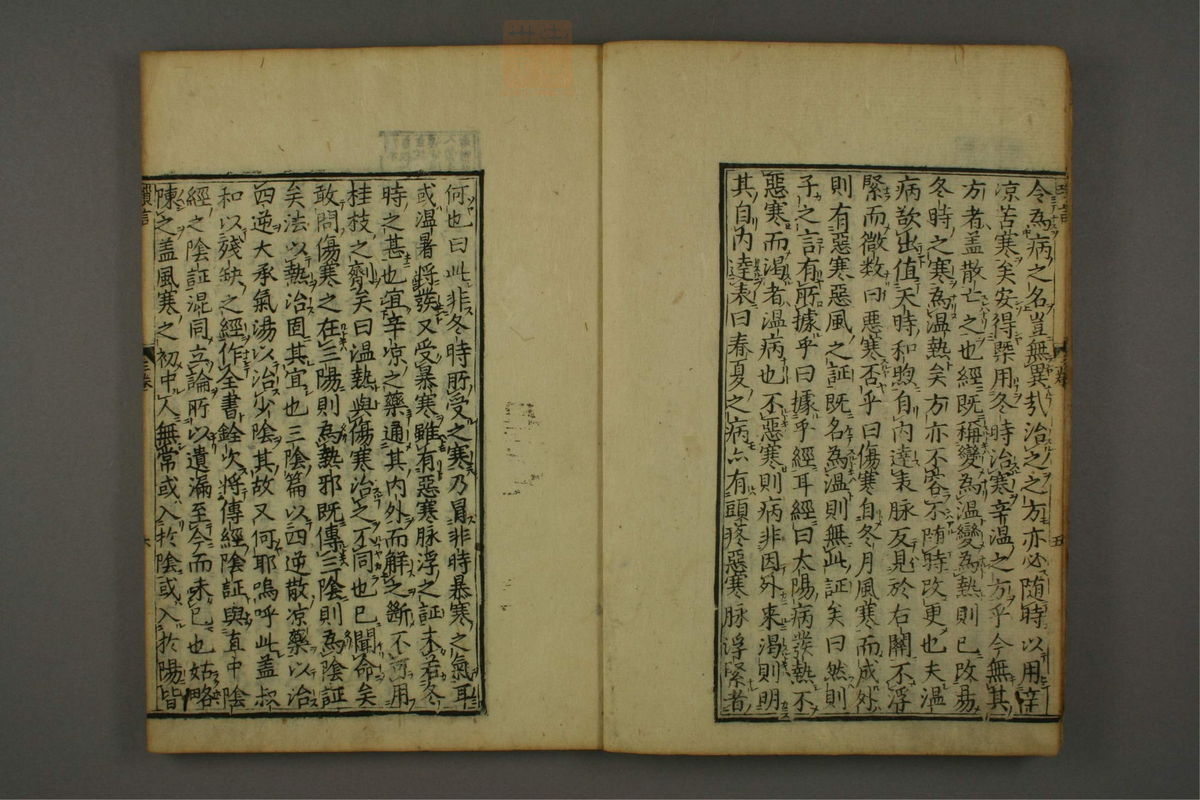 令為病之名豈無異哉治之之方亦必随時以用辛
凉苦寒矣安得槩用冬時治寒辛温之方乎今無其
方者盖散亡之也經既稱變為温變為熱則已改易
冬時之寒為温熱矣方亦不容不随時改更也夫温
病欲出值天時和煦自内達表脉反見於右關不浮
緊而微数曰惡寒否乎曰傷寒自冬月風寒而成外
則有惡寒惡風之証既名為温則無此証矣曰然則
子之言有所據乎曰據乎經耳經曰太陽病發熱不
惡寒而渴者温病也不惡寒則病非因外来渴則明
其自内達表曰春夏之病亦有頭疼惡寒脉浮緊者
何也曰此非冬時所受之寒乃冒非時暴寒之氣耳
或温暑将發又受暴寒雖有惡寒脉浮之証未若冬
時之甚也宜辛凉之藥通其内外而解之断不可用
桂枝之劑矣曰温熱與傷寒治之不同也已聞命矣
敢問傷寒之在三陽則為熱邪既傳三陰則為陰証
矣法以熱治固其宜也三陰篇以四逆散凉藥以治
四逆大承氣湯以治少陰其故又何耶嗚呼此盖叔
和以殘缺之經作全書詮次将傳經陰証與直中陰
經之陰証混同立論所以遺漏至今而未已也姑略
陳之盖風寒之初中人無常或入於陰或入於陽皆